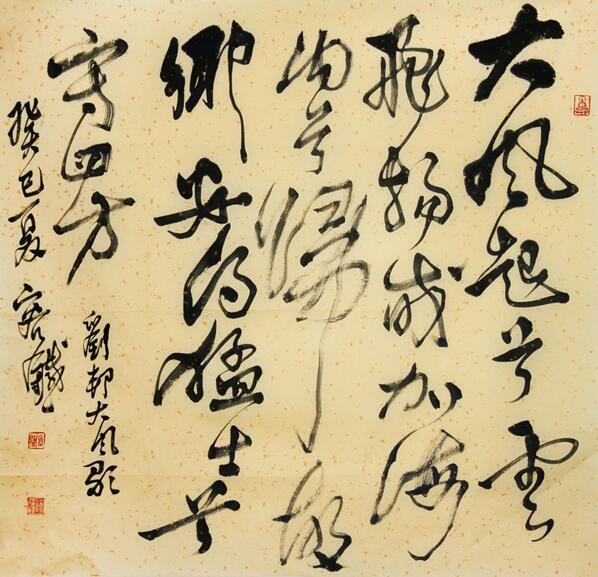 大风起兮雲
飛揚威加海
内兮歸故
鄉安得猛士兮
守四方
劉邦大风歌
癸巳夏